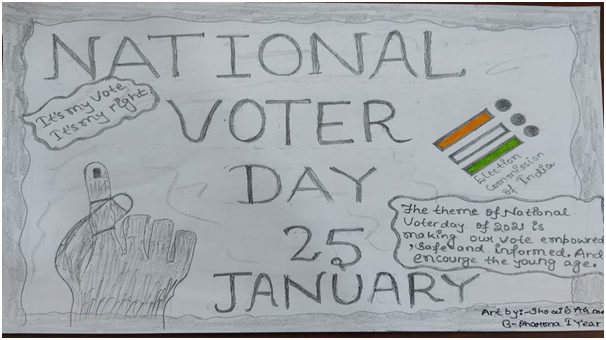 NATIONAL
It's my vote
It's my right
VOTER
DAY
25
JANUARY
Election
Commission
of India
The theme of National
Voterday of 2021 is
making our vote empowred
, safe and informed. And
encourge the young age.
Art by:-
B-Pharama I Year